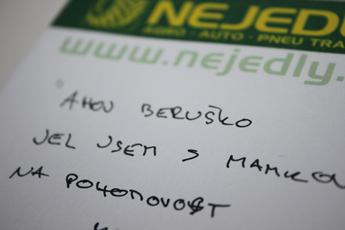 NEJEDL
AGRO - AUTO - PNEU TRA
www.nejedly.
AHOJ BERUŠKO
JEL JSEM S MAMKOU
NA POHOTOVOST